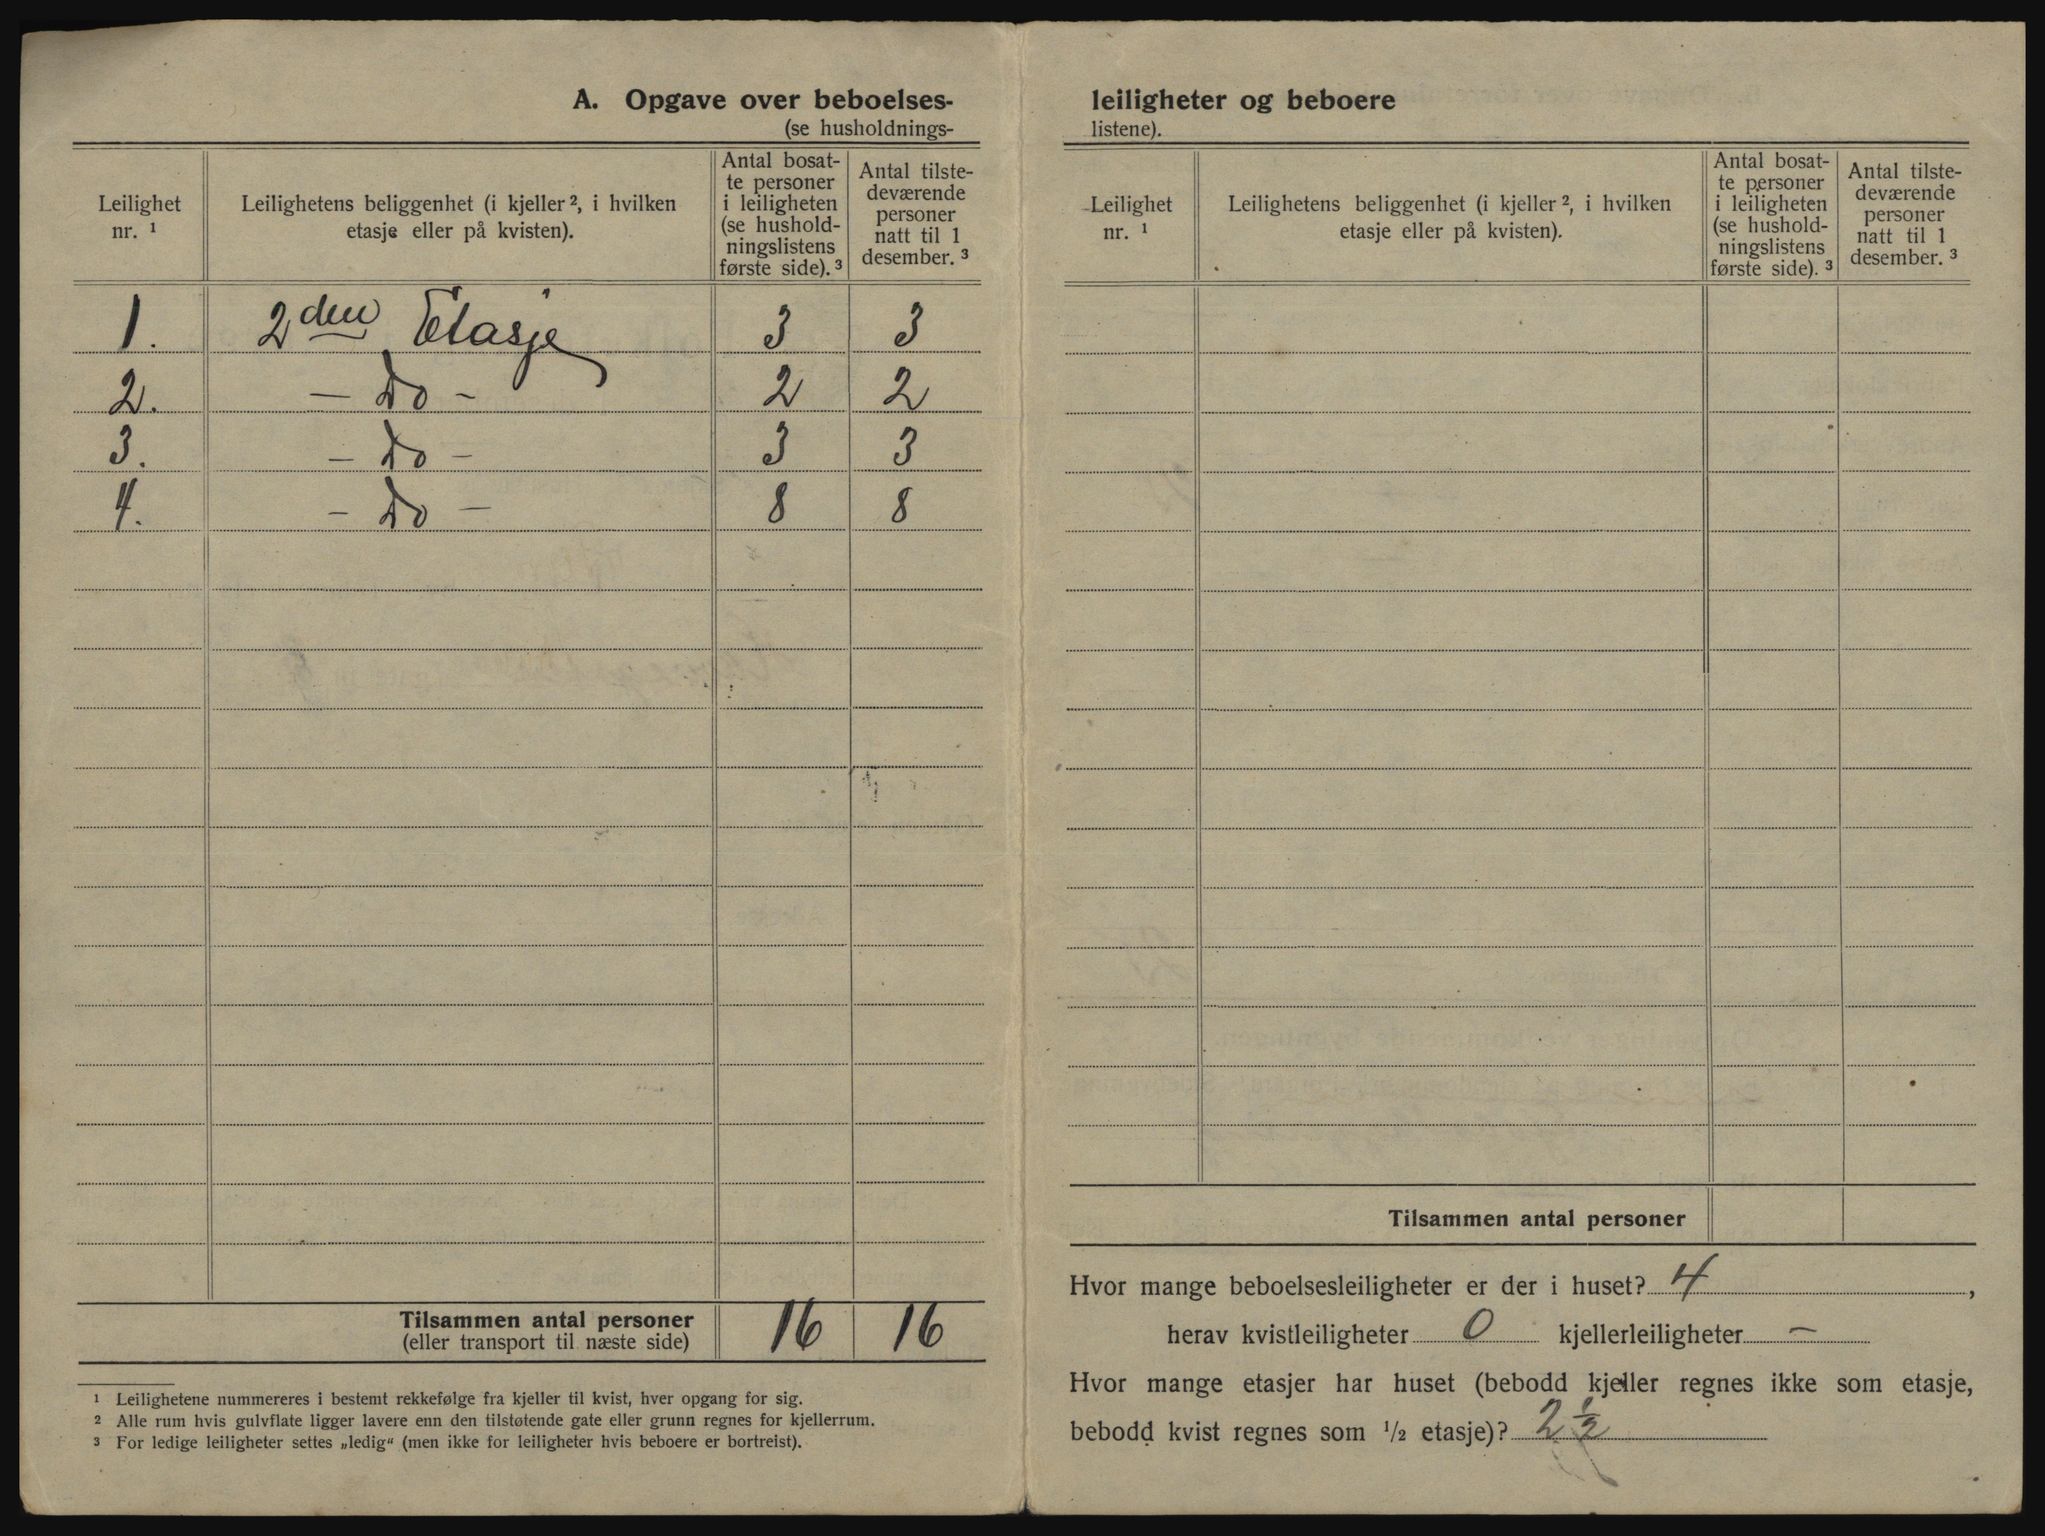 A. Opgave over beboelses-
(se husholdnings-
Leilighet nr. 1
Leilighetens beliggenhet (i kjeller 2, i hvilken etasje eller på kvisten).
Antal bosat-
te personer
i leiligheten
(se hushold-
ningslistens
første side). 3
Antal tilste-
deværende
personer
natt til 1
desember. 3
1. 2den Etasje 3 3
2. — Do - 2 2
3. — Do — 3 3
4. — Do — 8 8
Tilsammen antal personer 16 16
(eller transport til næste side)
1 Leilighetene nummereres i bestemt rekkefølge fra kjeller til kvist, hver opgang for sig.
2 Alle rum hvis gulvflate ligger lavere enn den tilstøtende gate eller grunn regnes for kjellerrum.
3 For ledige leiligheter settes „ledig“ (men ikke for leiligheter hvis beboere er bortreist).
leiligheter og beboere
listene).
Leilighet nr. 1
Leilighetens beliggenhet (i kjeller 2, i hvilken etasje eller på kvisten).
Antal bosat-
te personer
i leiligheten
(se hushold-
ningslistens
første side). 3
Antal tilste-
deværende
personer
natt til 1
desember. 3
Tilsammen antal personer
Hvor mange beboelsesleiligheter er der i huset? 4,
herav kvistleiligheter 0 kjellerleiligheter —
Hvor mange etasjer har huset (bebodd kjeller regnes ikke som etasje,
bebodd kvist regnes som 1/2 etasje)? 2 1/2